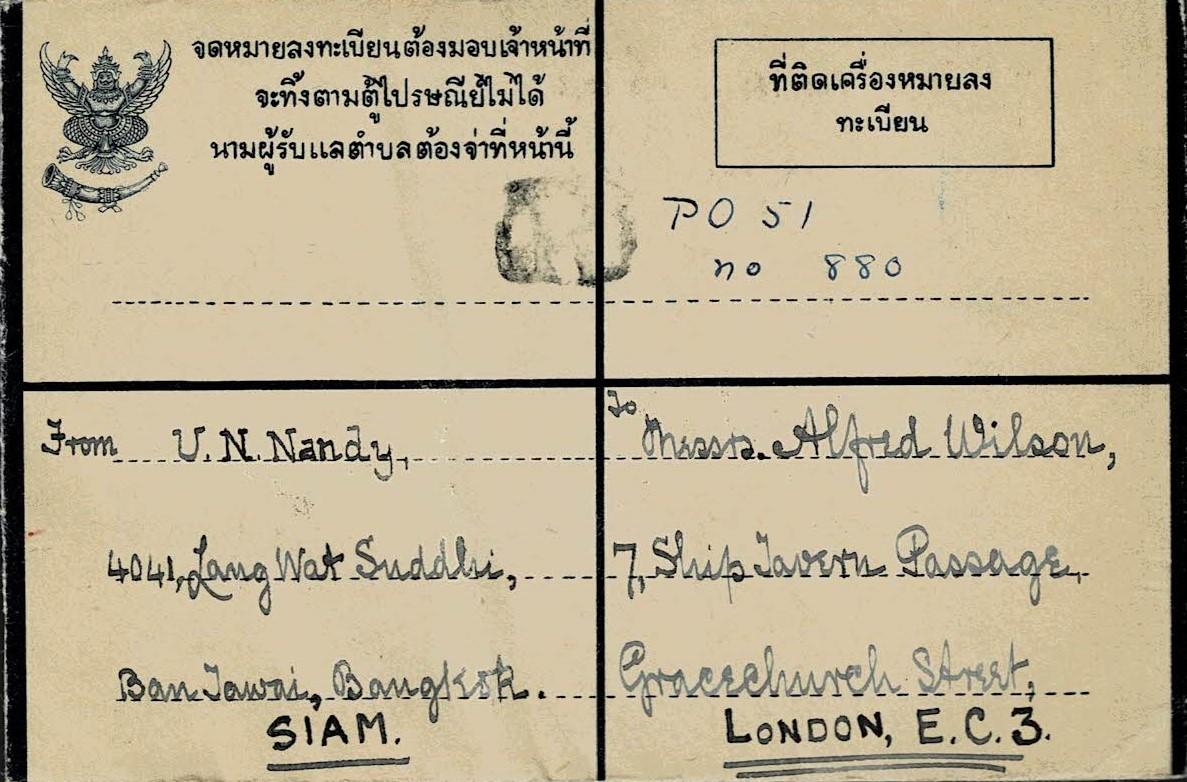 จดหมายลงทะเบียนต้องมอบเจ้าหน้าที่
จะทิ้งตามตู้ไปรษณีย์ไม่ได้
นามผู้รับแลตำบลต้องจ่าที่หน้านี้
ที่ติดเครื่องหมายลง
ทะเบียน
PO 51
no 880
From U. N. Nandy,
4041, Lang Wat Suddhi,
Ban Tawai, Bangkok.
SIAM.
To Messrs. Alfred Wilson,
7, Ship Tavern Passage,
Gracechurch Street,
LONDON, E.C.3.